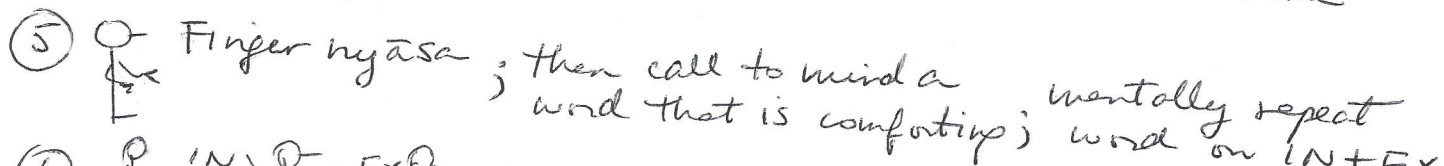 ⑤ Finger nyāsa; then call to mind a
word that is comforting; mentally repeat
word on IN + EX
IN EX